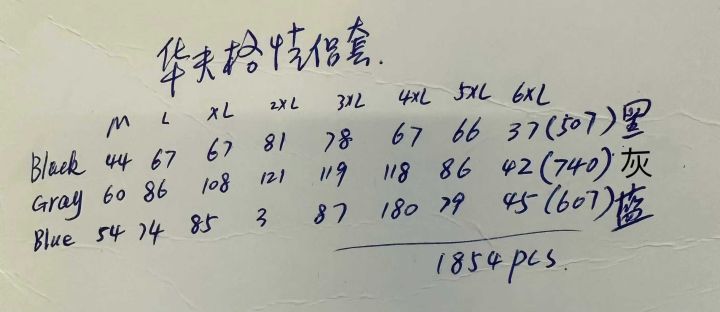 华夫格情侣套.
M L XL 2XL 3XL 4XL 5XL 6XL
Black 44 67 67 81 78 67 66 37 (507) 黑
Gray 60 86 108 121 119 118 86 42 (740) 灰
Blue 54 74 85 3 87 180 79 45 (607) 蓝
1854 pcs.